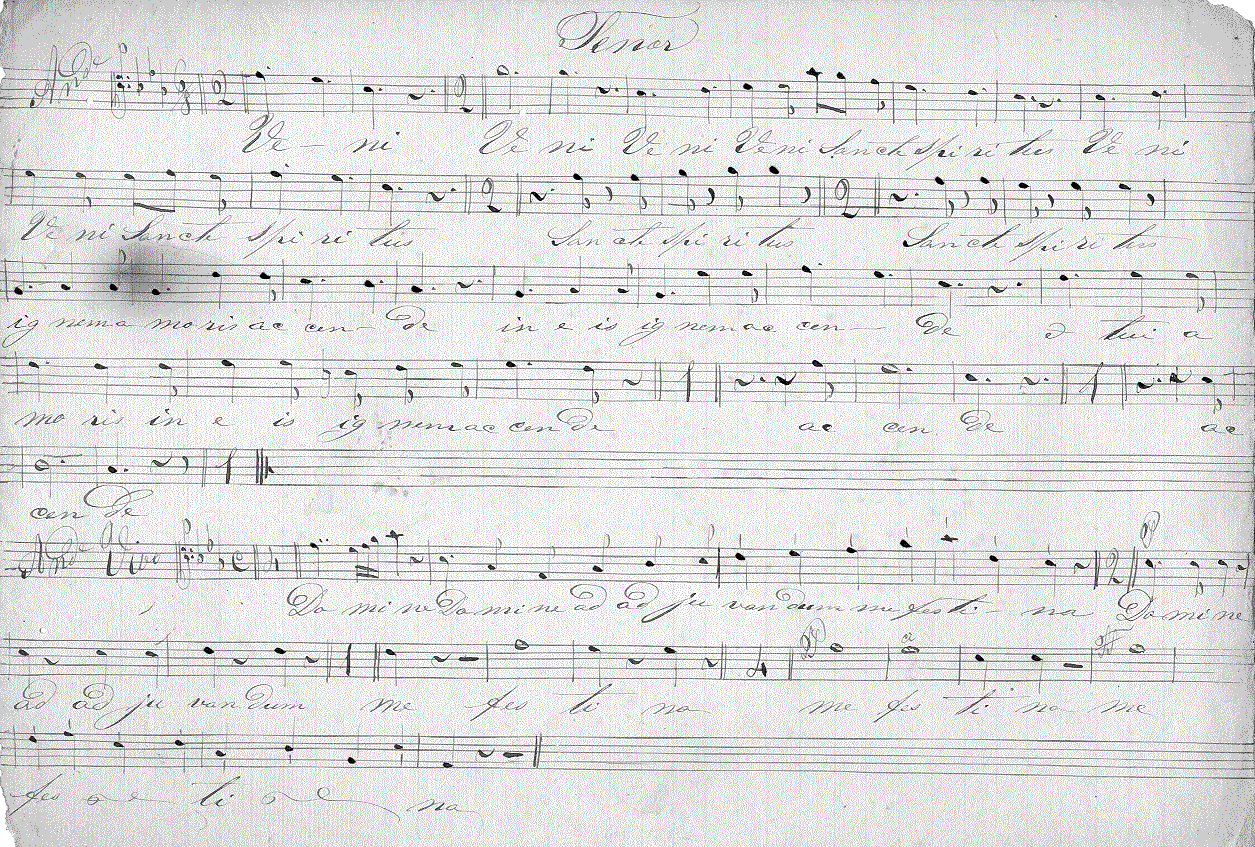 Tenor
And.e
Ve - ni Ve ni Ve ni Ve ni Sancte Spi ri tus Ve ni
Ve ni Sancte Spi ri tus Sancte Spi ri tus Sancte Spi ri tus
ig nem a mo ris ac cen - de in e is ig nem ac cen - de tui a
mo ris in e is ig nem ac cen de ac cen de ac
cen de
And.e Vivo
Do mi ne Do mi ne ad ad ju van dum me fes ti - na Do mi ne
ad ad ju van dum me fes ti na me fes ti na me
fes ti na